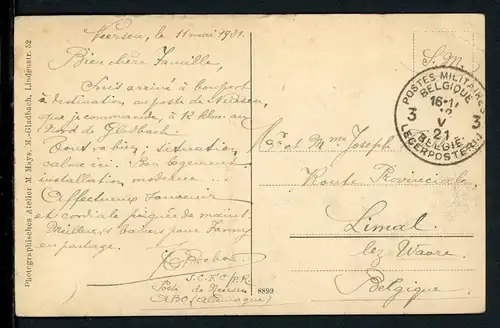 Neersen, le 11 mai 1921.
Bien chère Famille,
Suis arrivé à bon port
à destination au poste de Neersen,
que je commande, à 12 klm. au
Nord de Gladbach.
Tout va bien; situation
calme ici. Bon logement
installation moderne...
Affectueux Souvenir
et cordiale poignée de main.
Meilleurs baisers pour Fanny
en partage.
Poste de Neersen
(Allemagne)
S. M.
POSTES MILITAIRES
BELGIQUE
3 3
V
21
BELGIE
LEGERPOSTERIJ
Mr et Mme Joseph
Route Provinciale
Limal
lez Wavre
Belgique
8899
Photographisches Atelier M Mays. M.-Gladbach, Lindenstr. 52